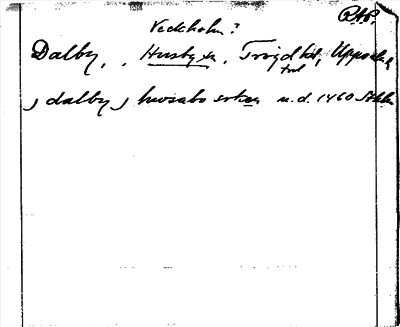 RAP.
Veckholm?
Dalby, , Husby sn, Trögd hd, Uppsala
tral
j dalby j hwsabo sokn u.d. 1460 Sthlm